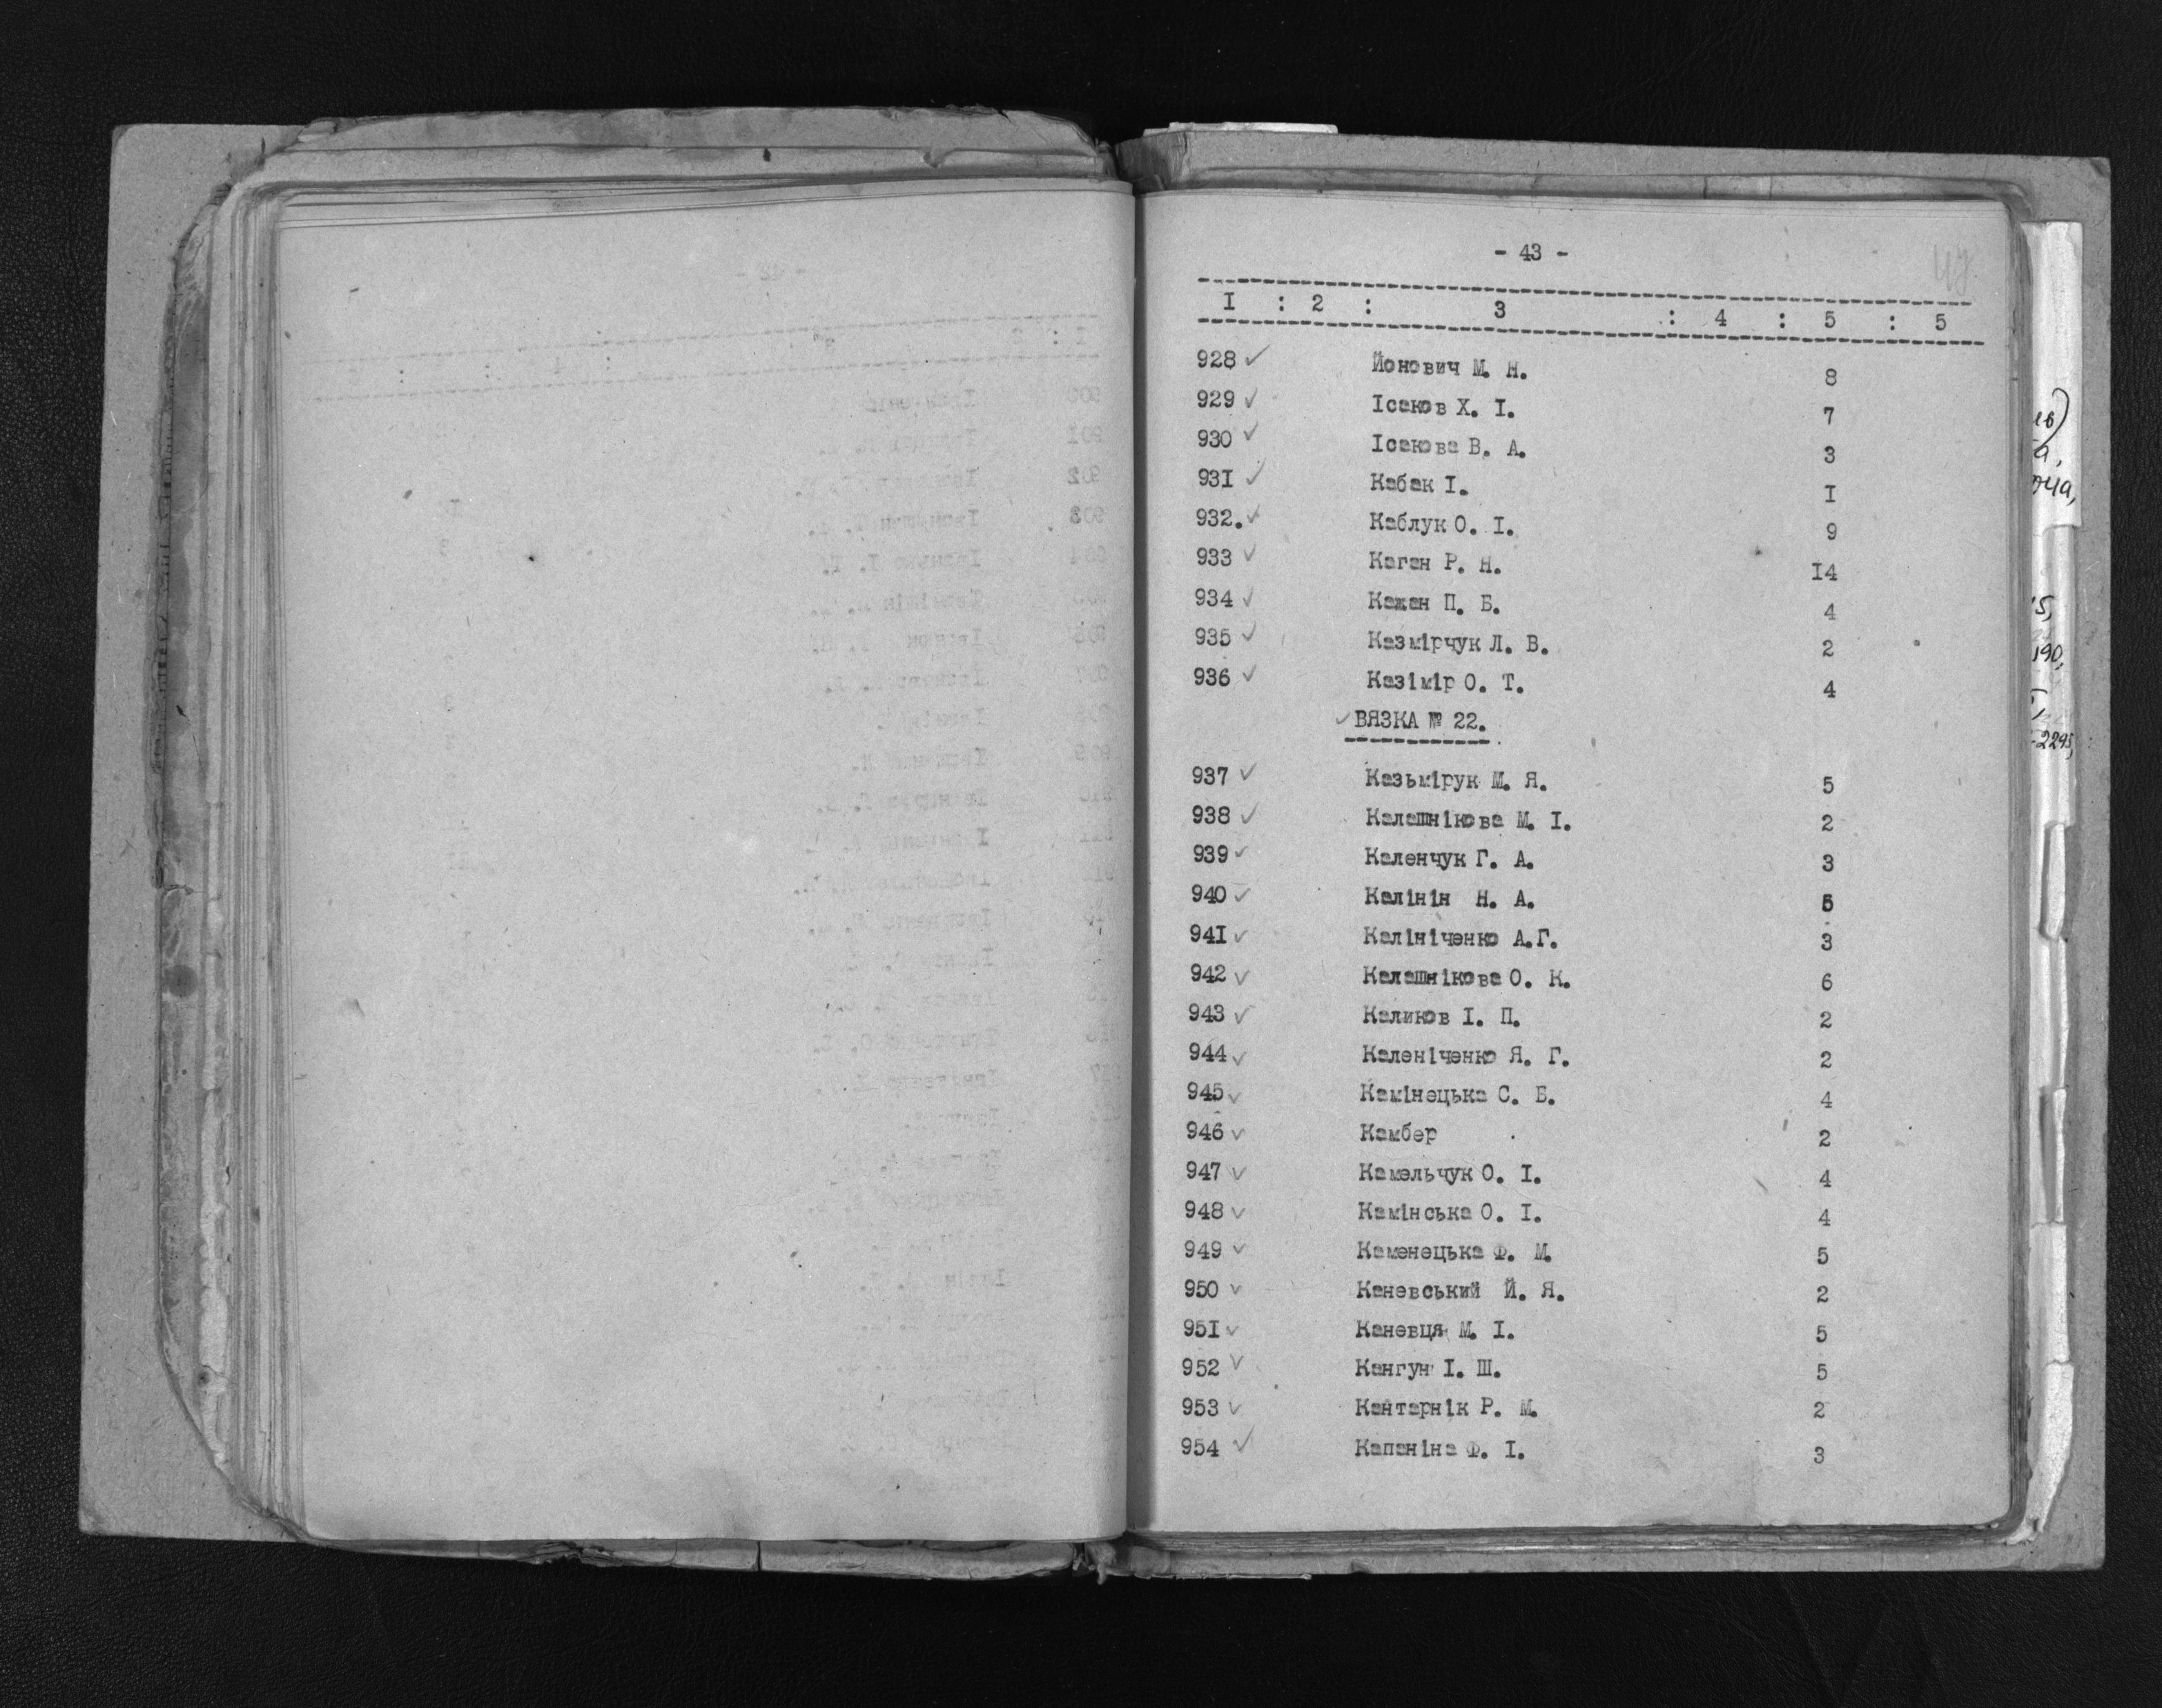 - 43 -
I : 2 : 3 : 4 : 5 : 5
928 ✓ Йонович М. Н. 8
929 ✓ Ісаков Х. І. 7
930 ✓ Ісакова В. А. 3
93I ✓ Кабак І. I
932. ✓ Каблук О. І. 9
933 ✓ Каган Р. Н. I4
934 ✓ Кажан П. Б. 4
935 ✓ Казмірчук Л. В. 2
936 ✓ Казімір О. Т. 4
✓ ВЯЗКА № 22.
937 ✓ Казьмірук М. Я. 5
938 ✓ Калашнікова М. І. 2
939 ✓ Каленчук Г. А. 3
940 ✓ Калінін Н. А. 5
94I ✓ Калініченко А.Г. 3
942 ✓ Калашнікова О. К. 6
943 ✓ Каликов І. П. 2
944 ✓ Каленіченко Я. Г. 2
945 ✓ Камінецька С. Б. 4
946 ✓ Камбер 2
947 ✓ Камельчук О. І. 4
948 ✓ Камінська О. І. 4
949 ✓ Каменецька Ф. М. 5
950 ✓ Каневський Й. Я. 2
95I ✓ Каневця М. І. 5
952 ✓ Кангун І. Ш. 5
953 ✓ Кантарнік Р. М. 2
954 ✓ Капаніна Ф. І. 3